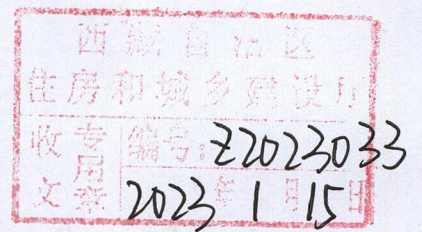 西藏自治区
住房和城乡建设厅
收文专用章
编号:Z2023033
2023年1月15日